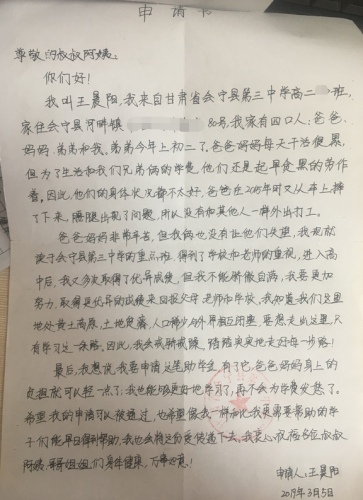 申请书
尊敬的叔叔阿姨：
你们好！
我叫王晨阳，我来自甘肃省会宁县第三中学高二 班，
家住会宁县河畔镇 80号，我家有四口人：爸爸、
妈妈、弟弟和我。弟弟今年上初二了，爸爸妈妈每天干活很累，
但为了生活和我们兄弟俩的学费，他们还是起早贪黑的劳作
着。因此，他们的身体状况都不太好，爸爸在2015年时又从车上摔
了下来，隔腿出现了问题，所以没有和其他人一样外出打工。
爸爸妈妈非常辛苦，但我俩也没有让他们失望，我现就
读于会宁县第三中学的重点班，得到了学校和老师的重视，进入高
中后，我又多次取得了优异成绩，但我不能骄傲自满，我要更加
努力，取得更优异的成绩来回报父母老师和学校，我知道我们这里
地处黄土高原，土地贫瘠，人口稀少与外界相互闭塞，要想走出这里，只
有学习这一条路。因此，我会戒骄戒躁，踏踏实实地走好每一步路！
最后，我想说，我要申请这笔助学金，有了它，爸爸妈妈身上的
负担就可以轻一点了，我也能够更好地学习了，再不会为学费发愁了。
希望我的申请可以被通过，也希望像我一样和比我更需要帮助的学
子们能早日得到帮助，我也会将这份爱传递下去，我衷心祝福各位叔叔
阿姨、哥哥姐姐们身体健康，万事如意！
申请人：王晨阳
2019年3月5日